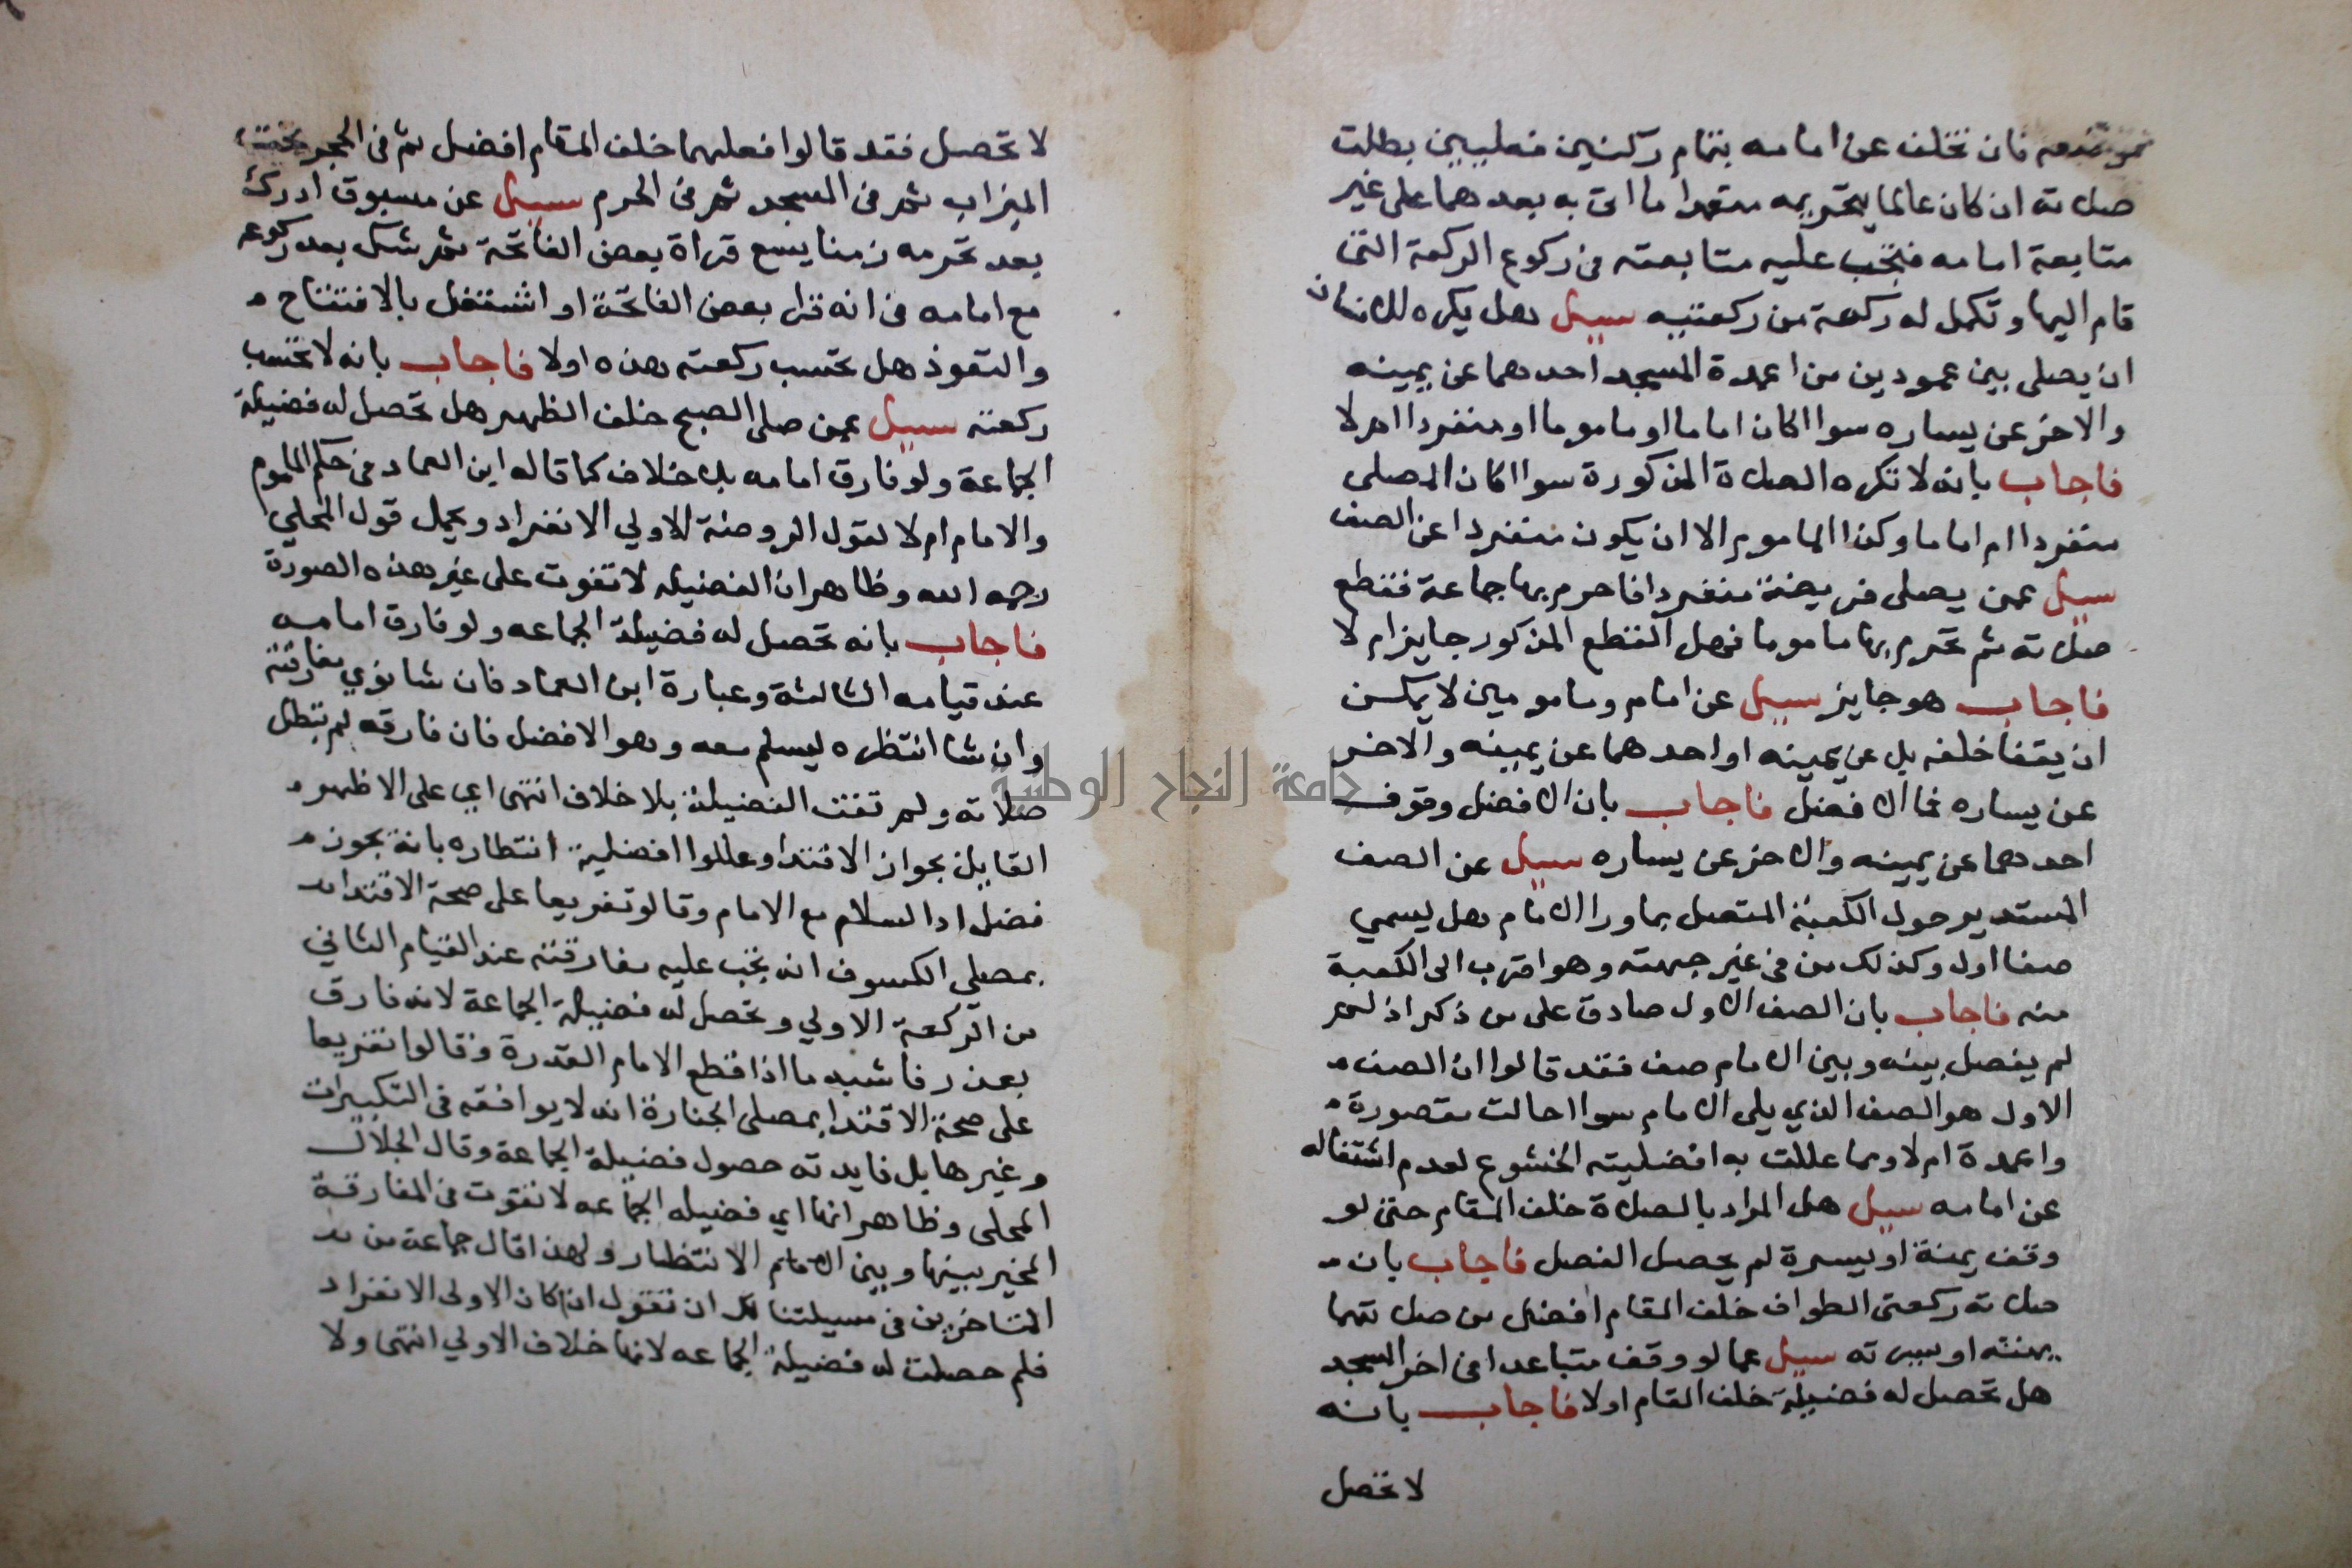 فان تخلف عن امامه بتمام ركنين فعليين بطلت
صلاته ان كان عالما بتحريمه متعمدا ما اتى به بعدهما على غير
متابعة امامه فتجب عليه متابعته في ركوع الركعة التي
قام اليها وتكمل له ركعة من ركعتيه سيل هل يكره للانسان
ان يصلى بين عمودين من اعمدة المسجد احدهما عن يمينه
والاخر عن يساره سوا اكان اماما او ماموما او منفردا ام لا
فاجاب بانه لا تكره الصلاة المذكورة سوا اكان المصلى
منفردا ام اماما وكذا الماموم الا ان يكون منفردا عن الصف
سيل عمن يصلى فريضة منفردا فاحرم بها جماعة فقطع
صلاته ثم تحرم بها ماموما فهل القطع المذكور جايز ام لا
فاجاب هو جايز سيل عن امام ومامومين لا يمكن
ان يقفا خلفه بل عن يمينه او احدهما عن يمينه والاخر
عن يساره فما الافضل فاجاب بان الافضل وقوف
احدهما عن يمينه والاخر عن يساره سيل عن الصف
المستدير حول الكعبة المتصل بما ورا الامام هل يسمي
صفا اول وكذلك من في غير جهته وهو اقرب الى الكعبة
منه فاجاب بان الصف الاول صادق على من ذكر اذ لم
لم يفصل بينه وبين الامام صف فقد قالوا ان الصف
الاول هو الصف الذي يلى الامام سوا احالت مقصورة
واعمدة ام لا ومما عللت به افضليته الخشوع لعدم اشتغاله
عن امامه سيل هل المراد بالصلاة خلف المقام حتى لو
وقف يمنة او يسرة لم يحصل الفصل فاجاب بان
صلاته ركعتى الطواف خلف المقام افضل من صلاتهما
يمنته او يسرته سيل عما لو وقف متباعدا في اخر المسجد
هل تحصل له فضيلة خلف المقام اولا فاجاب بانه
لا تحصل
لا تحصل فقد قالوا فعلهما خلف المقام افضل ثم في الحجر تحت
الميزاب ثم في المسجد ثم في الحرم سيل عن مسبوق ادرك
بعد تحرمه زمنا يسع قراة بعض الفاتحة ثم شك بعد ركوعه
مع امامه في انه قرا بعض الفاتحة او اشتغل بالافتتاح
والتعوذ هل تحتسب ركعته هذه اولا فاجاب بانه لا تحتسب
ركعته سيل عمن صلى الصبح خلف الظهر هل تحصل له فضيلة
الجماعة ولو فارق امامه بلا خلاف كما قاله ابن العماد في حكم الماموم
والامام ام لا لقول الروضة الاولي الانفراد ويحمل قول المحلي
رحمه الله وظاهر ان الفضيلة لا تفوت على غير هذه الصورة
فاجاب بانه تحصل له فضيلة الجماعه ولو فارق امامه
عند قيامه الثالثة وعبارة ابن العماد فان شا نوي مفارقته
وان شا انتظره ليسلم معه وهو الافضل فان فارقه لم تبطل
صلاته ولم تفت الفضيلة بلا خلاف انتهى اي على الاظهر
القايل بجواز الاقتدا وعللوا افضلية انتظاره بانه يحوز
فضل ادا السلام مع الامام وقالو تفريعا على صحة الاقتدا
بمصلي الكسوف انه يجب عليه مفارقته عند القيام الثاني
من الركعة الاولي وتحصل له فضيلة الجماعة لانه فارق
بعذر فاشبه ما اذا قطع الامام القدرة وقالوا تفريعا
على صحة الاقتدا بمصلى الجنازة انه لا يوافقه في التكبيرات
وغيرها بل فايدته حصول فضيلة الجماعة وقال الجلال
المحلى وظاهر انها اي فضيله الجماعه لا تفوت في المفارقة
المخير بينها وبين الانتظار ولهذا قال جماعة من
المتاخرين في مسيلتنا لك ان تقول ان كان الاولى الانفراد
فلم حصلت له فضيلة الجماعه لانها خلاف الاولي انتهى ولا
جامعة النجاح الوطنية